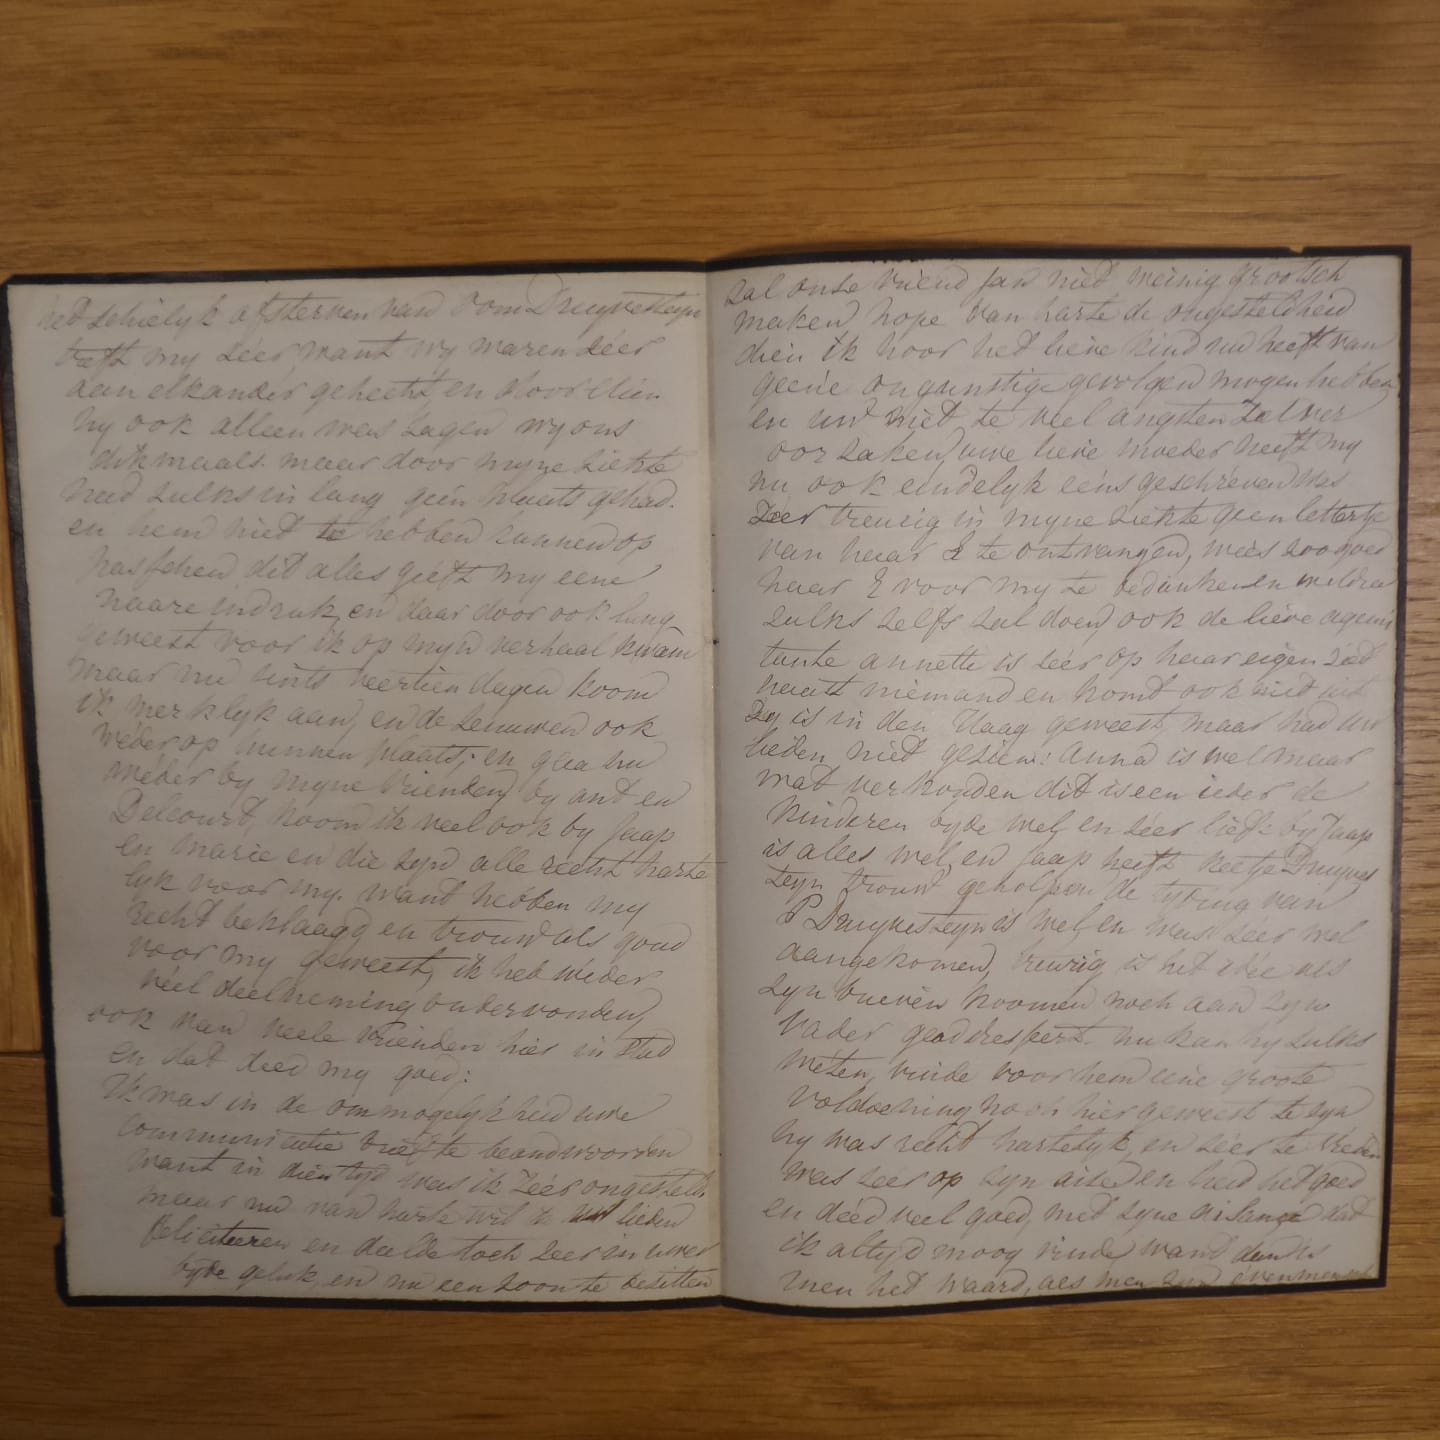 het schielyk afsterven van oom Druyvesteyn
treft my zéér want wy waren zéér
aan elkander gehecht, en door dien
hy ook alleen was zagen wy ons
dikmaals. maar door myne ziekte
had zulks in lang géén plaats gehad.
en hem niet te hebben kunnen op
passchen dit alles geeft my eene
naare indruk, en daar door ook lang
geweest voor ik op myn verhaal kwam
maar nu sints veertien dagen koom
ik merklyk aan, en de zenuwen ook
weder op hunnen plaats; en gaa nu
wéder by myne vrienden, by ant en
Delcourt, koom ik veel ook by Jaap
en Marie en die zyn alle recht harte
lyk voor my. want hebben my
recht beklaagd en trouw als goud
voor my geweest, ik heb wéder
véél deelneming ondervonden,
ook van veele vrienden hier in stad
en dat deed my goed:
Ik was in de onmogelykheid uwe
communicatie brief te beandwoorden
want in dien tyd was ik Zéér ongesteld,
maar nu van harte wil ik lieden
feliciteeren en deelde toch zeer in uwer
byde geluk, en nu een zoon te bezitten
zal onze vriend Jan niet weinig grootsch
maken hope van harte de ongesteldheid
dien ik hoor het lieve kind nu heeft van
geene ongunstige gevolgen mogen hebben
en uw niet te veel angsten zal ver
oorzaken, uwe lieve moeder heeft my
nu ook eindelyk eens geschréven was
Zeer treurig in myne ziekte geen lettertje
van haar te ontvangen, wees zoo goed
haar voor my te bedanken en weldra
zulks zelfs zal doen, ook de lieve
tante annette is zéér op haar eigen
haalt niemand en komt ook niet uit
Zy is in den Haag geweest, maar had uw
lieden niet gezien: Anna is wel maar
wat verkouden dit is een ieder de
kinderen byde wel, en zéér lief: by Jaap
is alles wel, en Jaap heeft Keetje Druyves
teyn trouw geholpen de tyding van
P Druyvesteyn is wel, en was zeer wel
aangekomen, treurig is het idée als
zyn brieven koomen noch aan zyn
Vader geadresseert. nu kan hy zulks
wéten, vinde voor hem eene groote
voldoening noch hier geweest te zyn
hy was recht hartelyk, en zéér te vréden
was zeer op zyn en had het goed
en deed veel goed, met zyne dat
ik altyd mooy vinde want dan is
men het waard, als men zyn evenmensch